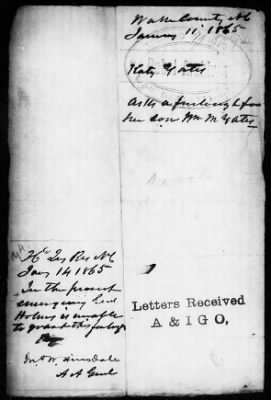 Wake County NC
January 11, 1865
Katy Yates
Asks a furlough for
her son Wm M Yates
Hd Qrs Res NC
Jany 14 1865
In the present
emergency Genl
Holmes is unable
to grant this furlough
Jno W. Hinsdale
A A Genl
Letters Received
A & I G O,